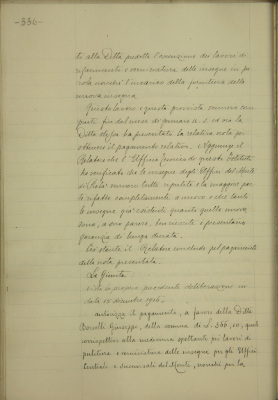 -336-
te alla Ditta predetta l'esecuzione dei lavori di
riparazione e verniciatura delle insegne in pa-
rola nonchè l'incarico della fornitura della
nuova insegna.
Questi lavori e questa provvista vennero com-
piuti fin dal mese di gennaio u. s. ed ora la
Ditta stessa ha presentata la relativa nota per
ottenere il pagamento relativo. Aggiunge il
Relatore che l'Ufficio Tecnico di questo Istituto
ha verificato che le insegne degli Uffici del Monte
di Pietà vennero tutte ripulite e la maggior par-
te rifatte completamente a nuovo e che tanto
le insegne già esistenti quanto quelle nuove
sono, a suo parere, ben riuscite e presentano
garanzia di lunga durata.
Ciò stante il Relatore conclude pel pagamento
della nota presentata.
La Giunta
vista la propria precedente deliberazione in
data 15 dicembre 1916,
autorizza il pagamento, a favore della Ditta
Giuseppe, della somma di L. 366,10, quale
corrispettivo alla medesima spettante pei lavori di
pulitura e verniciatura delle insegne per gli Uffici
Centrale e succursali del Monte, nonchè per la